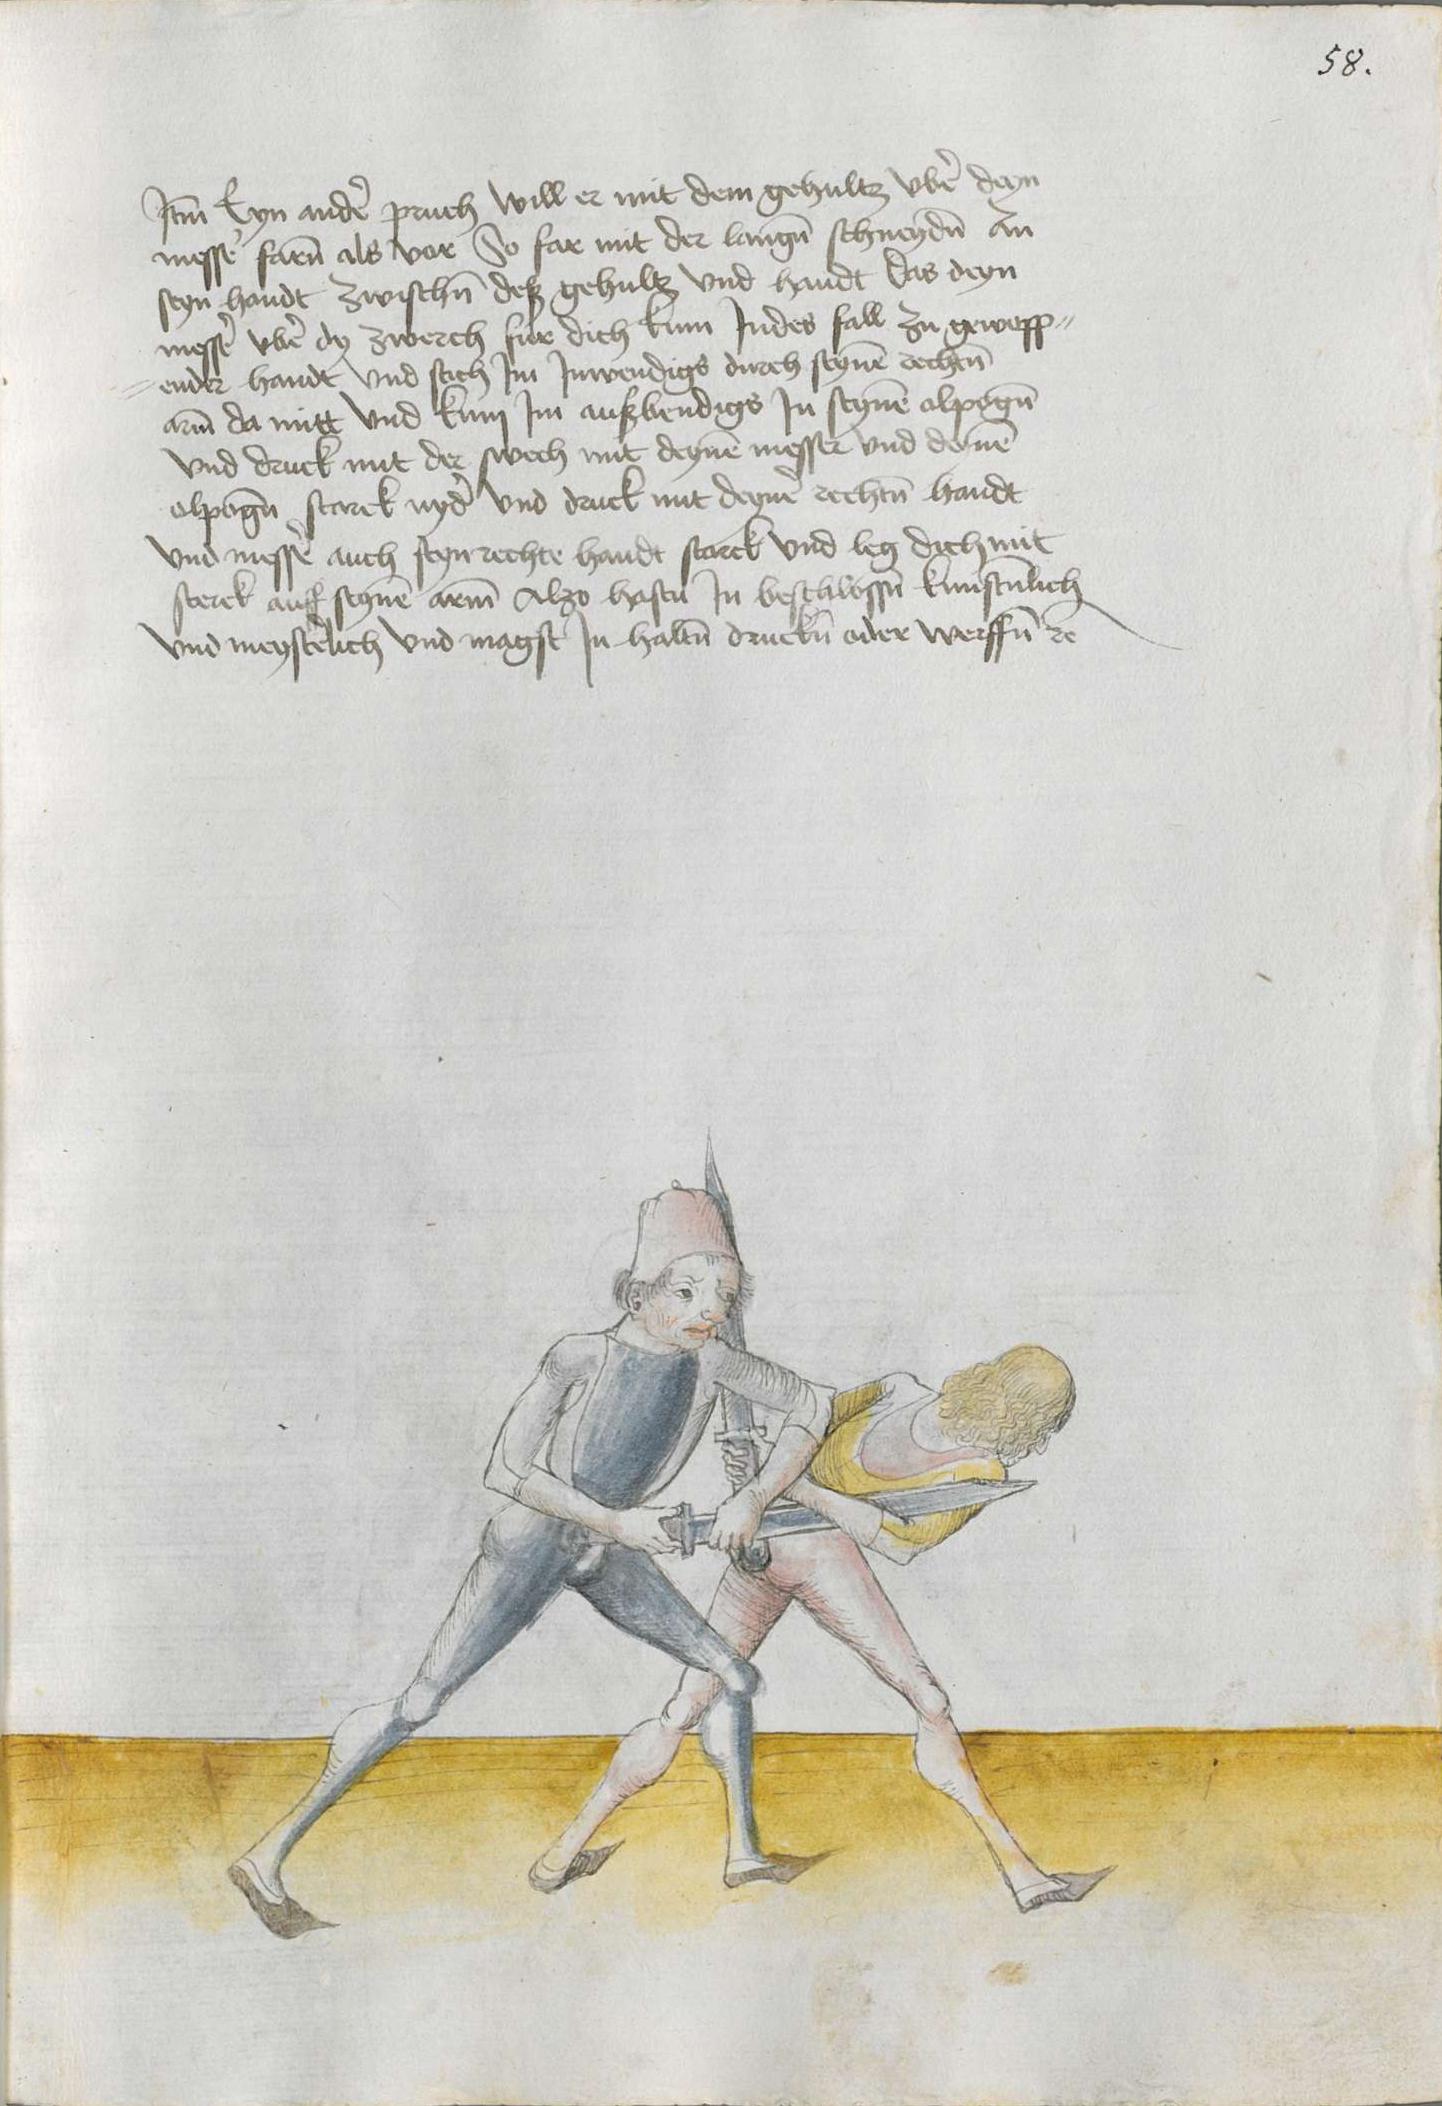 58.
Itm̄ Eyn ander̄ pruch Will er mit dem gehultz vber̄ deyn
messer̄ farn̄ als vor So far mit der langn̄ schneydn̄ An
seyn handt zwischn̄ deß gehultz vnd handt Das deyn
messer̄ vber̄ dy zwerch für dich kum Indes fall zu gewapp⸗
⸗ender handt vnd stich Im Inwendigs durch seynē rechtn̄
arm̄ da mitt vnd kum Im außbendigs In seynē elpogn̄
vnd druck mit der swech mit deynē messer vnd deynē
elpogn̄ starck nyder̄ vnd druck mit deyner̄ rechtn̄ handt
vnd messer̄ auch seyn rechte handt starck vnd leg dich mit
sterck auff seynē arm̄ Alzo hastu In beschlossn̄ kunstn̄lich
vnd meysterlich vnd magst In haltn̄ druckn̄ oder werffn̄ rē